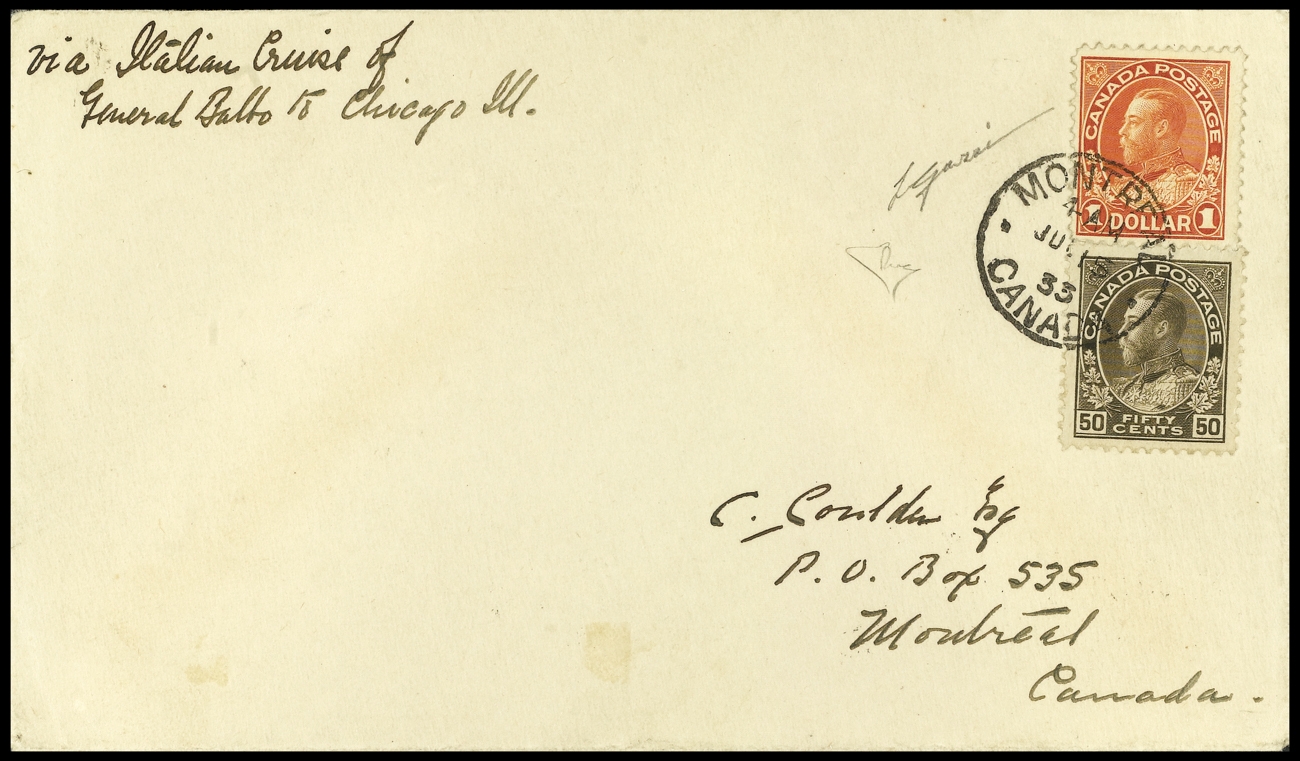 via Italian Cruise of
General Balbo to Chicago Ill.
CANADA POSTAGE
1 DOLLAR 1
MONTREAL
4 AM
JUL 15
33
CANADA
CANADA POSTAGE
50 FIFTY CENTS 50
C. Coulden Esq
P. O. Box 535
Montreal
Canada.